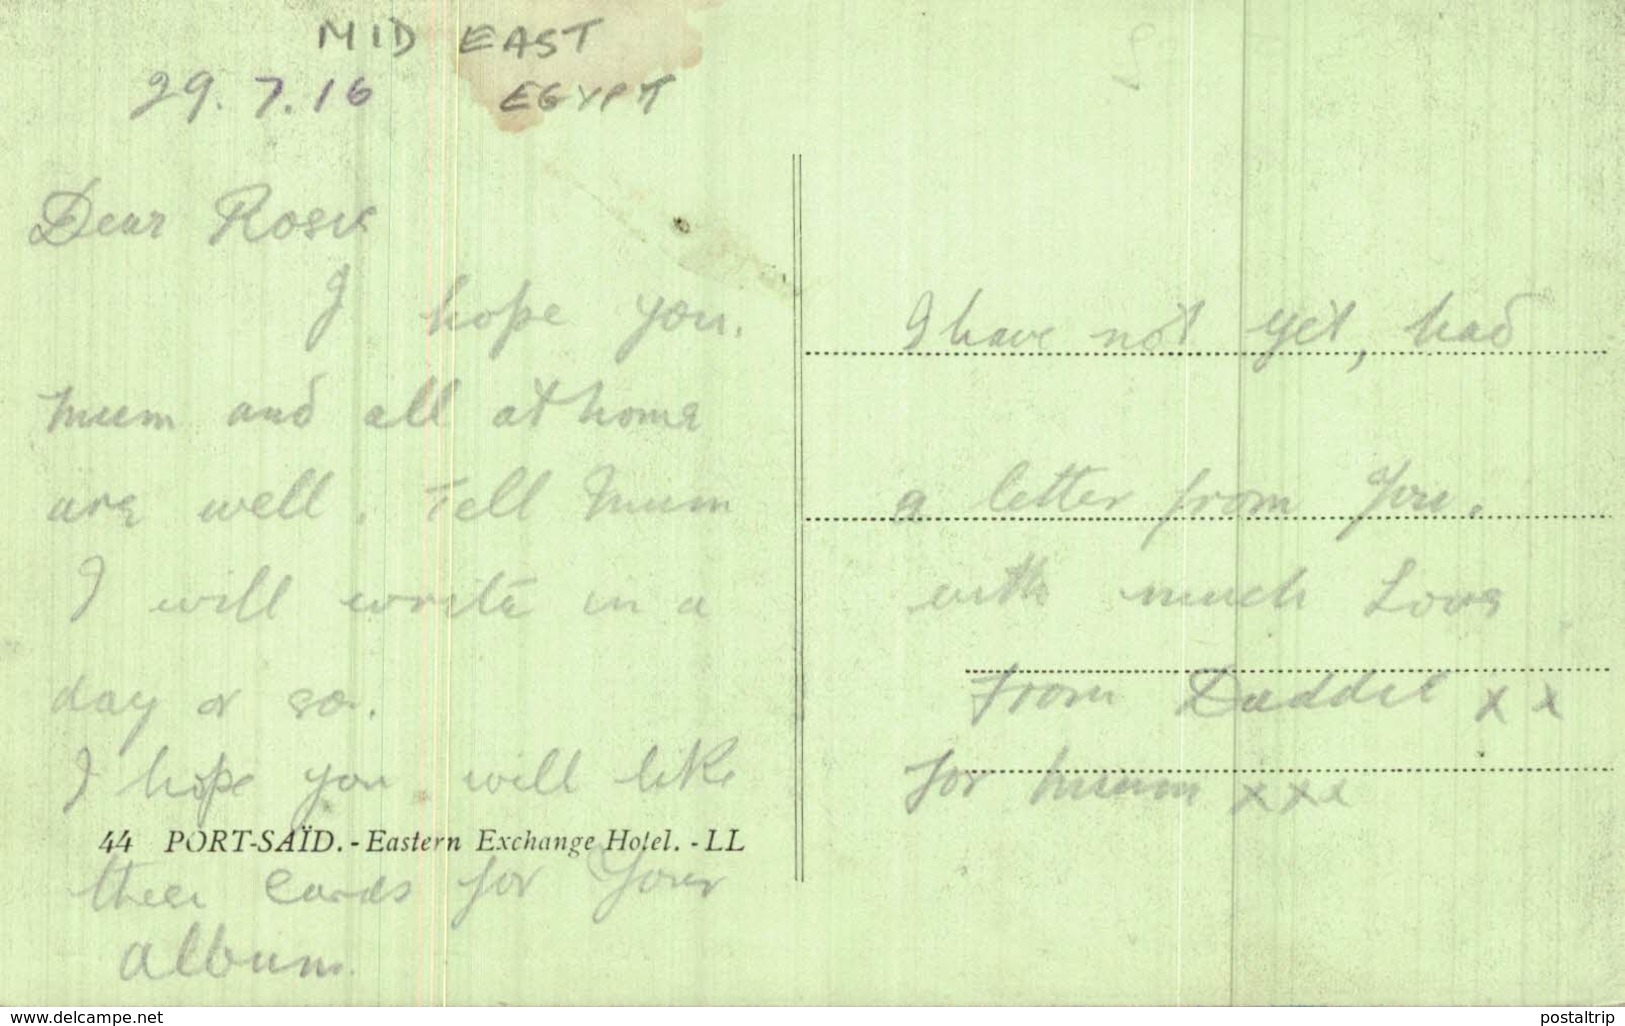 MID EAST
29.7.16 EGYPT
Dear Rosie
I hope you.
Mum and all at home
are well. Tell Mum
I will write in a
day or so.
I hope you will like
44 PORT-SAÏD. - Eastern Exchange Hotel. - LL
these cards for your
album.
I have not yet, had
a letter from you.
with much Love
from Daddie x x
for mum x x x
www.delcampe.net
postaltrip